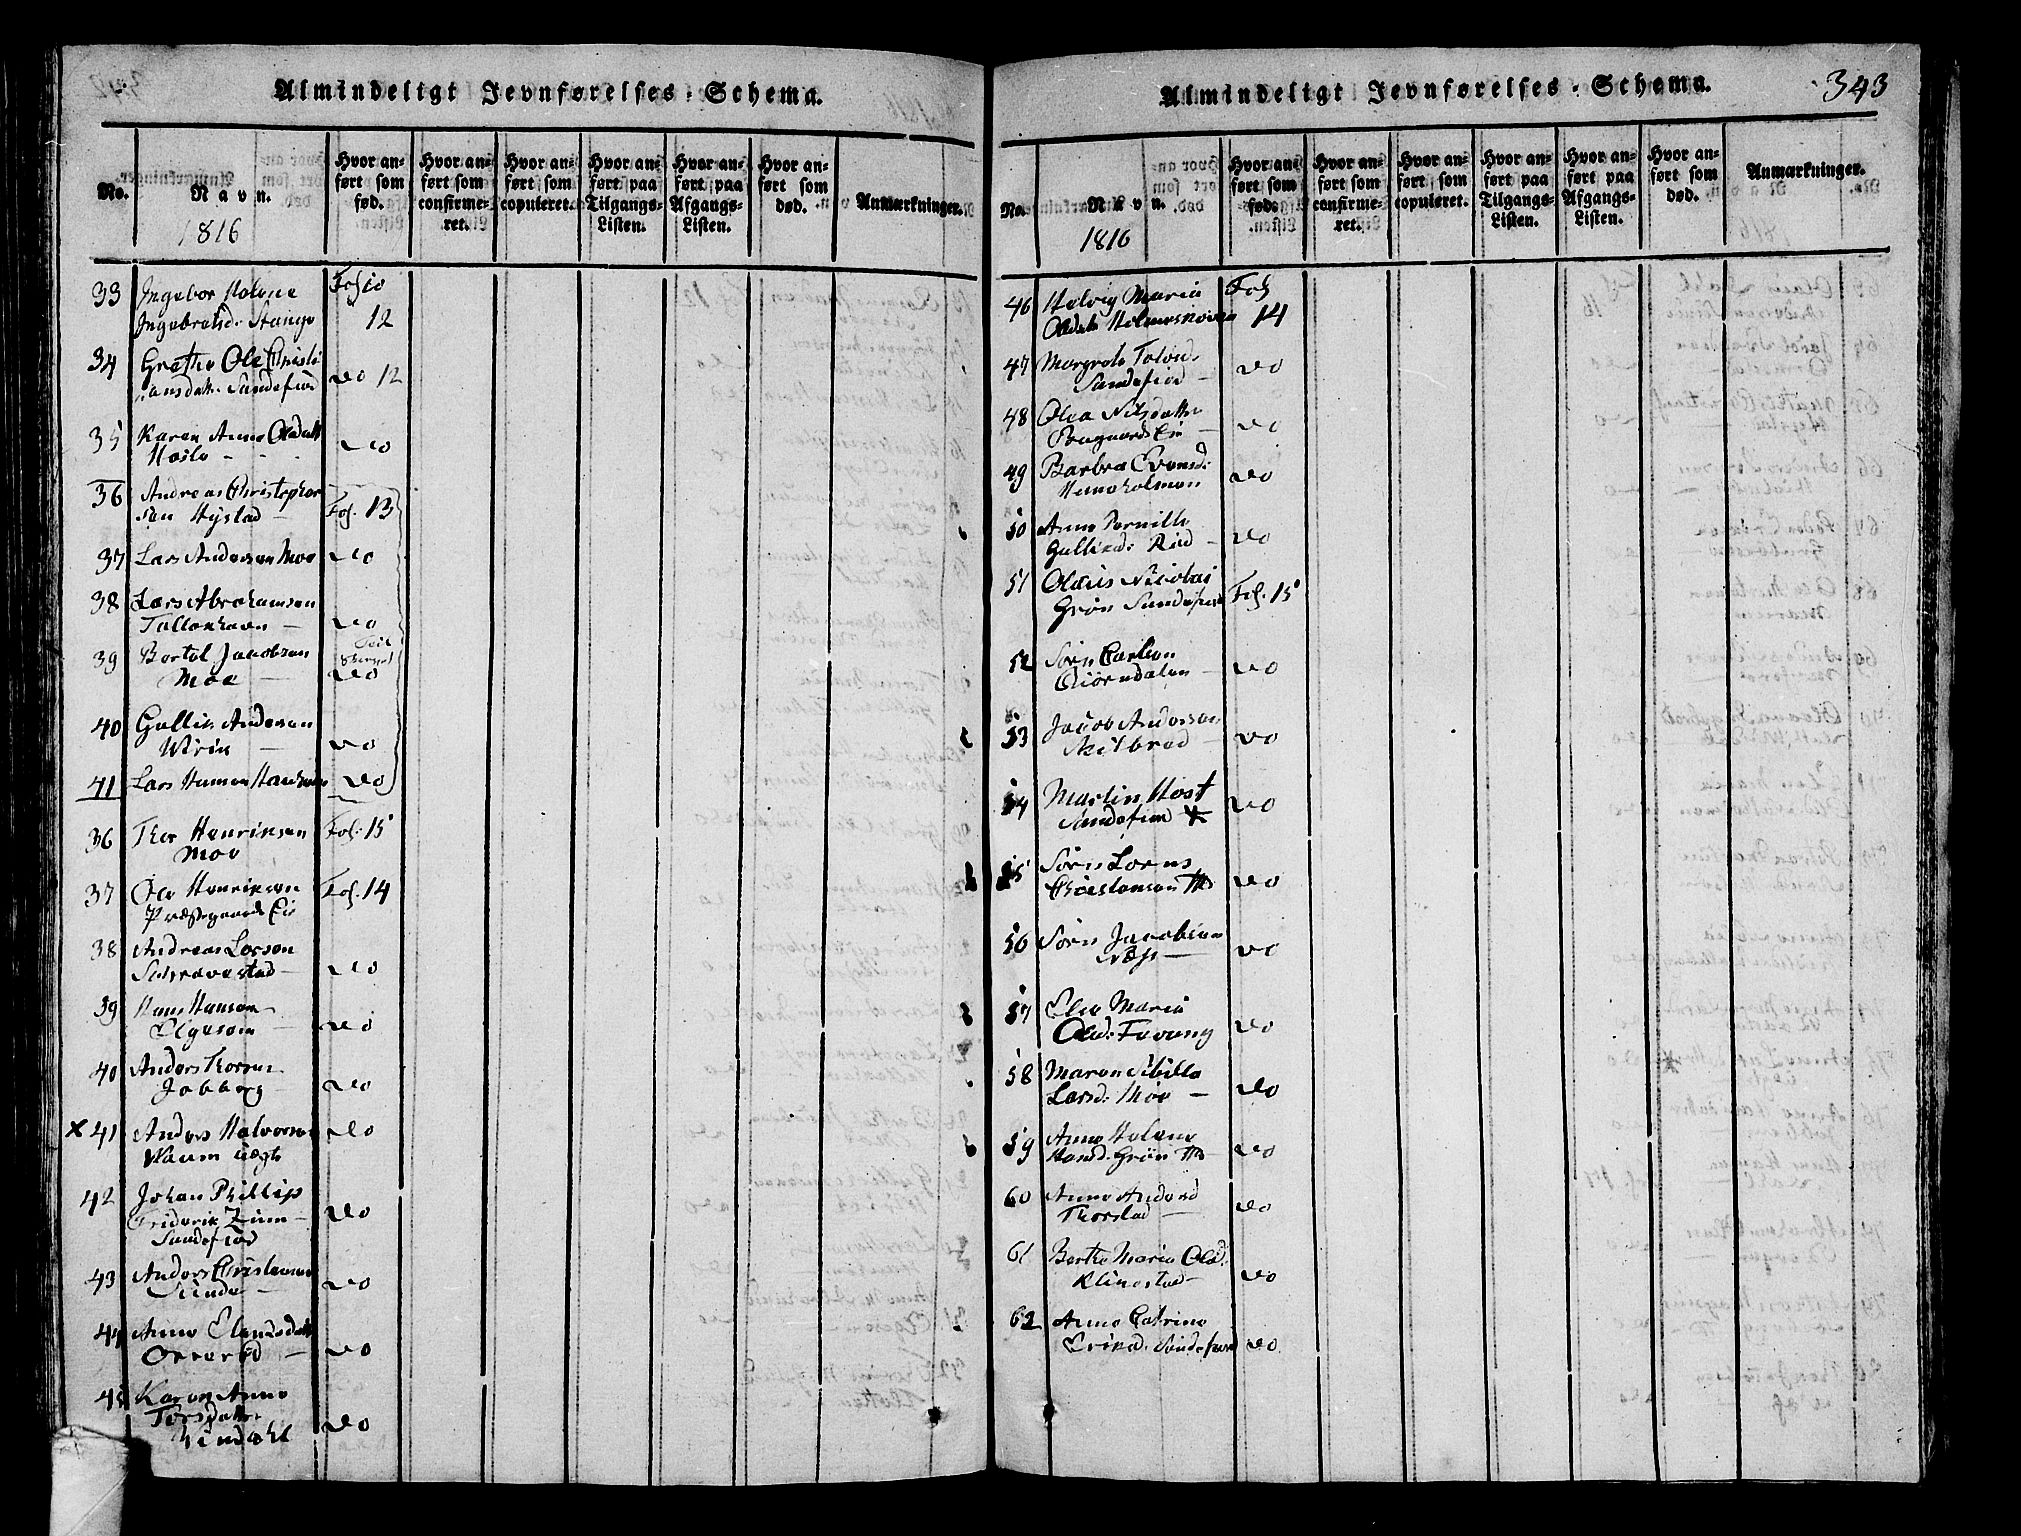 Almindeligt Jevnførelses-Schema.
No.
Navn.
1816
Hvor anført som fød.
Hvor anført som confirmeret.
Hvor anført som copuleret.
Hvor anført paa Tilgangs-Listen.
Hvor anført paa Afgangs-Listen.
Hvor anført som død.
Anmærkninger.
33 Ingebor Helene Fol 10
Ingebretsd: Stange 12
34 Grethe Ole Christi
ansdatt: Sandefiord do 12
35 Karen Anne Olsdatt
Hasle do
36 Andreas Christophor
sen Hystad Fol. 13
37 Lars Andersen Moe do
38 Lars Abrahamsen
Tallakshavn do
39 Bertel Jacobsen
Moe do
40 Gullik Andersen
Wirik do
41 Lars Hansen do
36 Thor Henriksen Fol. 15
Moe
37 Ole Henriksen Fol. 14
Præstegaards Eie
38 Andreas Larsen
Schravestad do
39 Hans Hansen
Elgesem do
40 Anders Thorsen
Jobberg do
x 41 Anders Halvorsen do
Haum
42 Johan Phillip
Friderik Zinn do
Sandefiord
43 Anders Christensen
Sunde do
44 Anne Elandsdatt
do
45 Karen Anne
Torsdatter
Lindahl do
Almindeligt Jevnførelses-Schema.
343
No.
Navn.
1816
Hvor anført som fød.
Hvor anført som confirmeret.
Hvor anført som copuleret.
Hvor anført paa Tilgangs-Listen.
Hvor anført paa Afgangs-Listen.
Hvor anført som død.
Anmærkninger.
46 Helvig Maria Fol
Olsdatt 14
47 Margrete Tolvsd.
Sandefiord do
48 Olea Nilsdatter
do
49 Barbra Evensd:
do
50 Anne Pernille
Gulliksd: do
51 Olaus Nicolai
Grøn Sandefiord Fol. 15
52 Sørn Carlsen
Biørndalen do
53 Jacob Andersen
Skilbred do
54 Martin Høst
Sandefiord do
55 Sørn Lorns
Christensen do
56 Sørn Jacobsen
Næss do
57 Else Maria
Olsd: do
58 Maren Sibille
Larsd: Moe do
59 Anne Helene
Hansd. Grøn do
60 Anne Andersd
Thorstad do
61 Berthe Maria Olsd:
Klinestad do
62 Anne Catrine
Eriksd: Sandefiord do